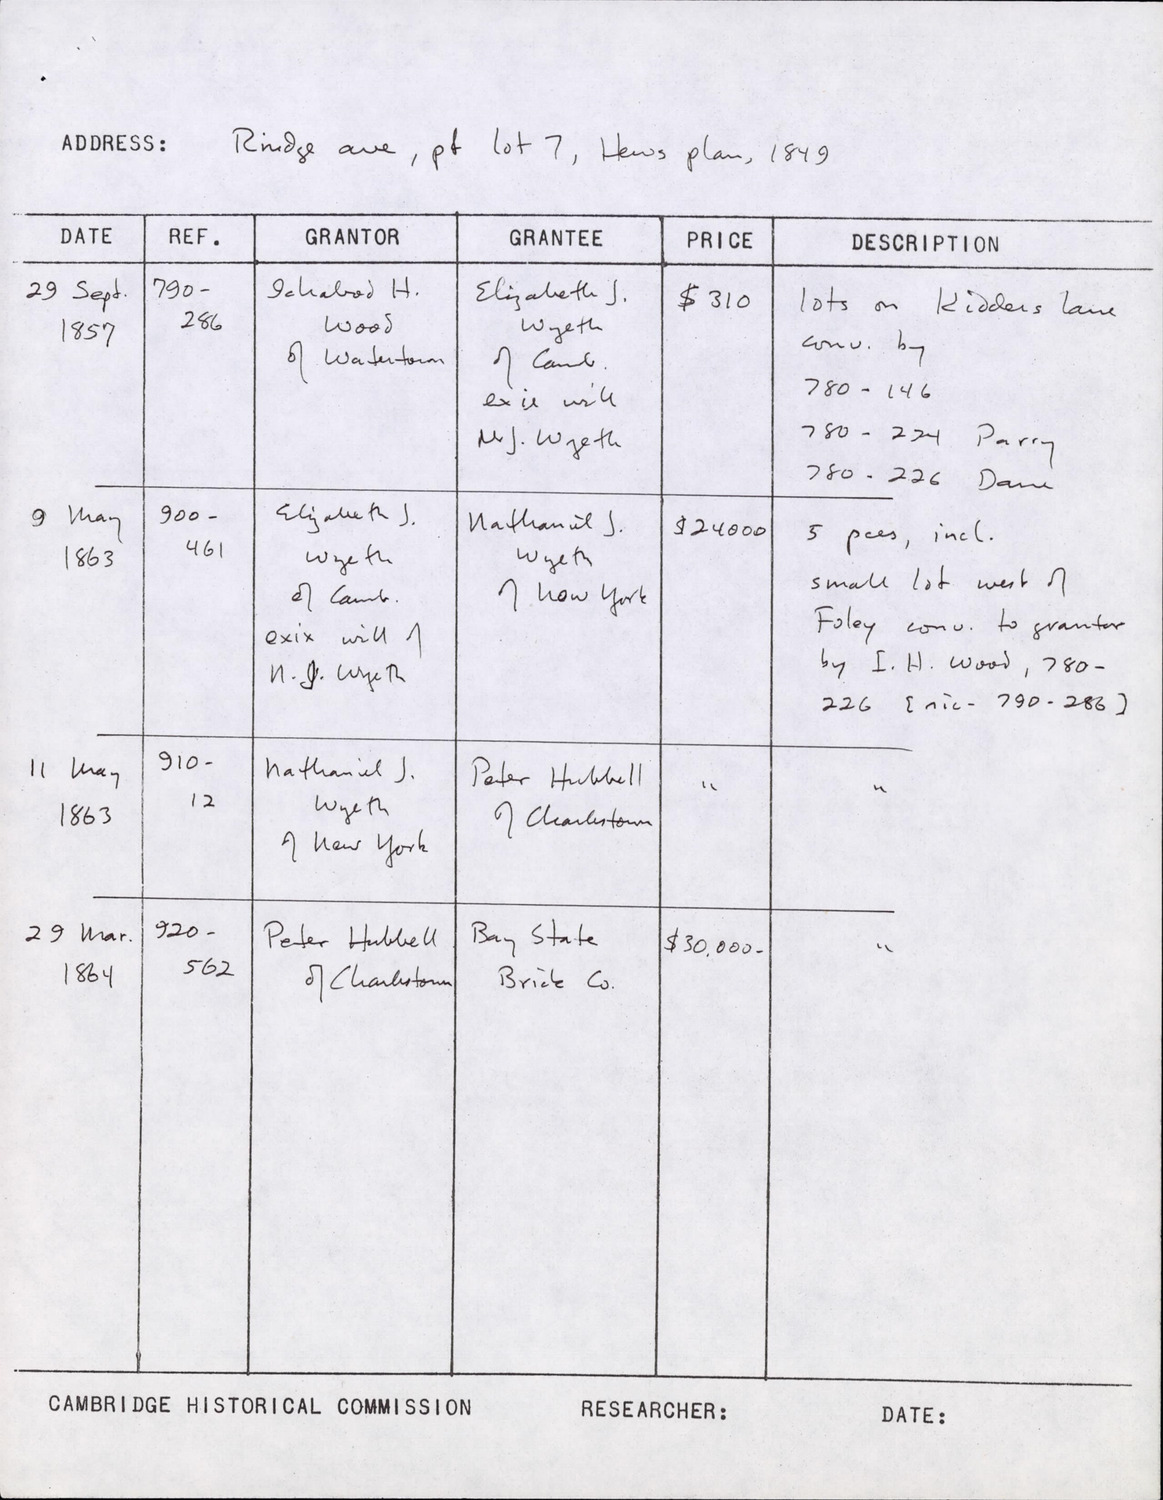 ADDRESS: Rindge ave, pt lot 7, Hews plan, 1849
DATE REF. GRANTOR GRANTEE PRICE DESCRIPTION
29 Sept. 1857
790-286
Ichabod H.
Wood
of Watertown
Elizabeth J.
Wyeth
of Camb.
exix will
N.J. Wyeth
$310
lots on Kidders lane
conv. by
780-146
780-224 Parry
780-226 Dane
9 May
1863
900-
461
Elizabeth J.
Wyeth
of Camb.
exix will of
N.J. Wyeth
Nathaniel J.
Wyeth
of New York
$24000
5 pces, incl.
small lot west of
Foley conv. to grantor
by I.H. Wood, 780-
226 [sic- 790-286]
11 May
1863
910-
12
Nathaniel J.
Wyeth
of New York
Peter Hubbell
of Charlestown
"
"
29 Mar.
1864
920-
562
Peter Hubbell
of Charlestown
Bay State
Brick Co.
$30,000-
"
CAMBRIDGE HISTORICAL COMMISSION RESEARCHER: DATE: